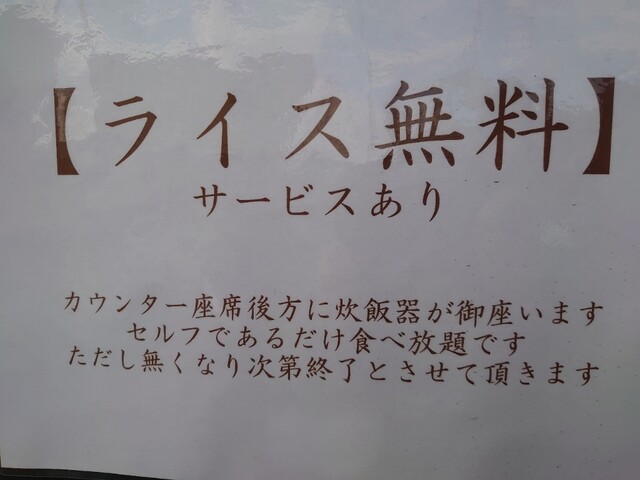 【ライス無料】
サービスあり
カウンター座席後方に炊飯器が御座います
セルフであるだけ食べ放題です
ただし無くなり次第終了とさせて頂きます